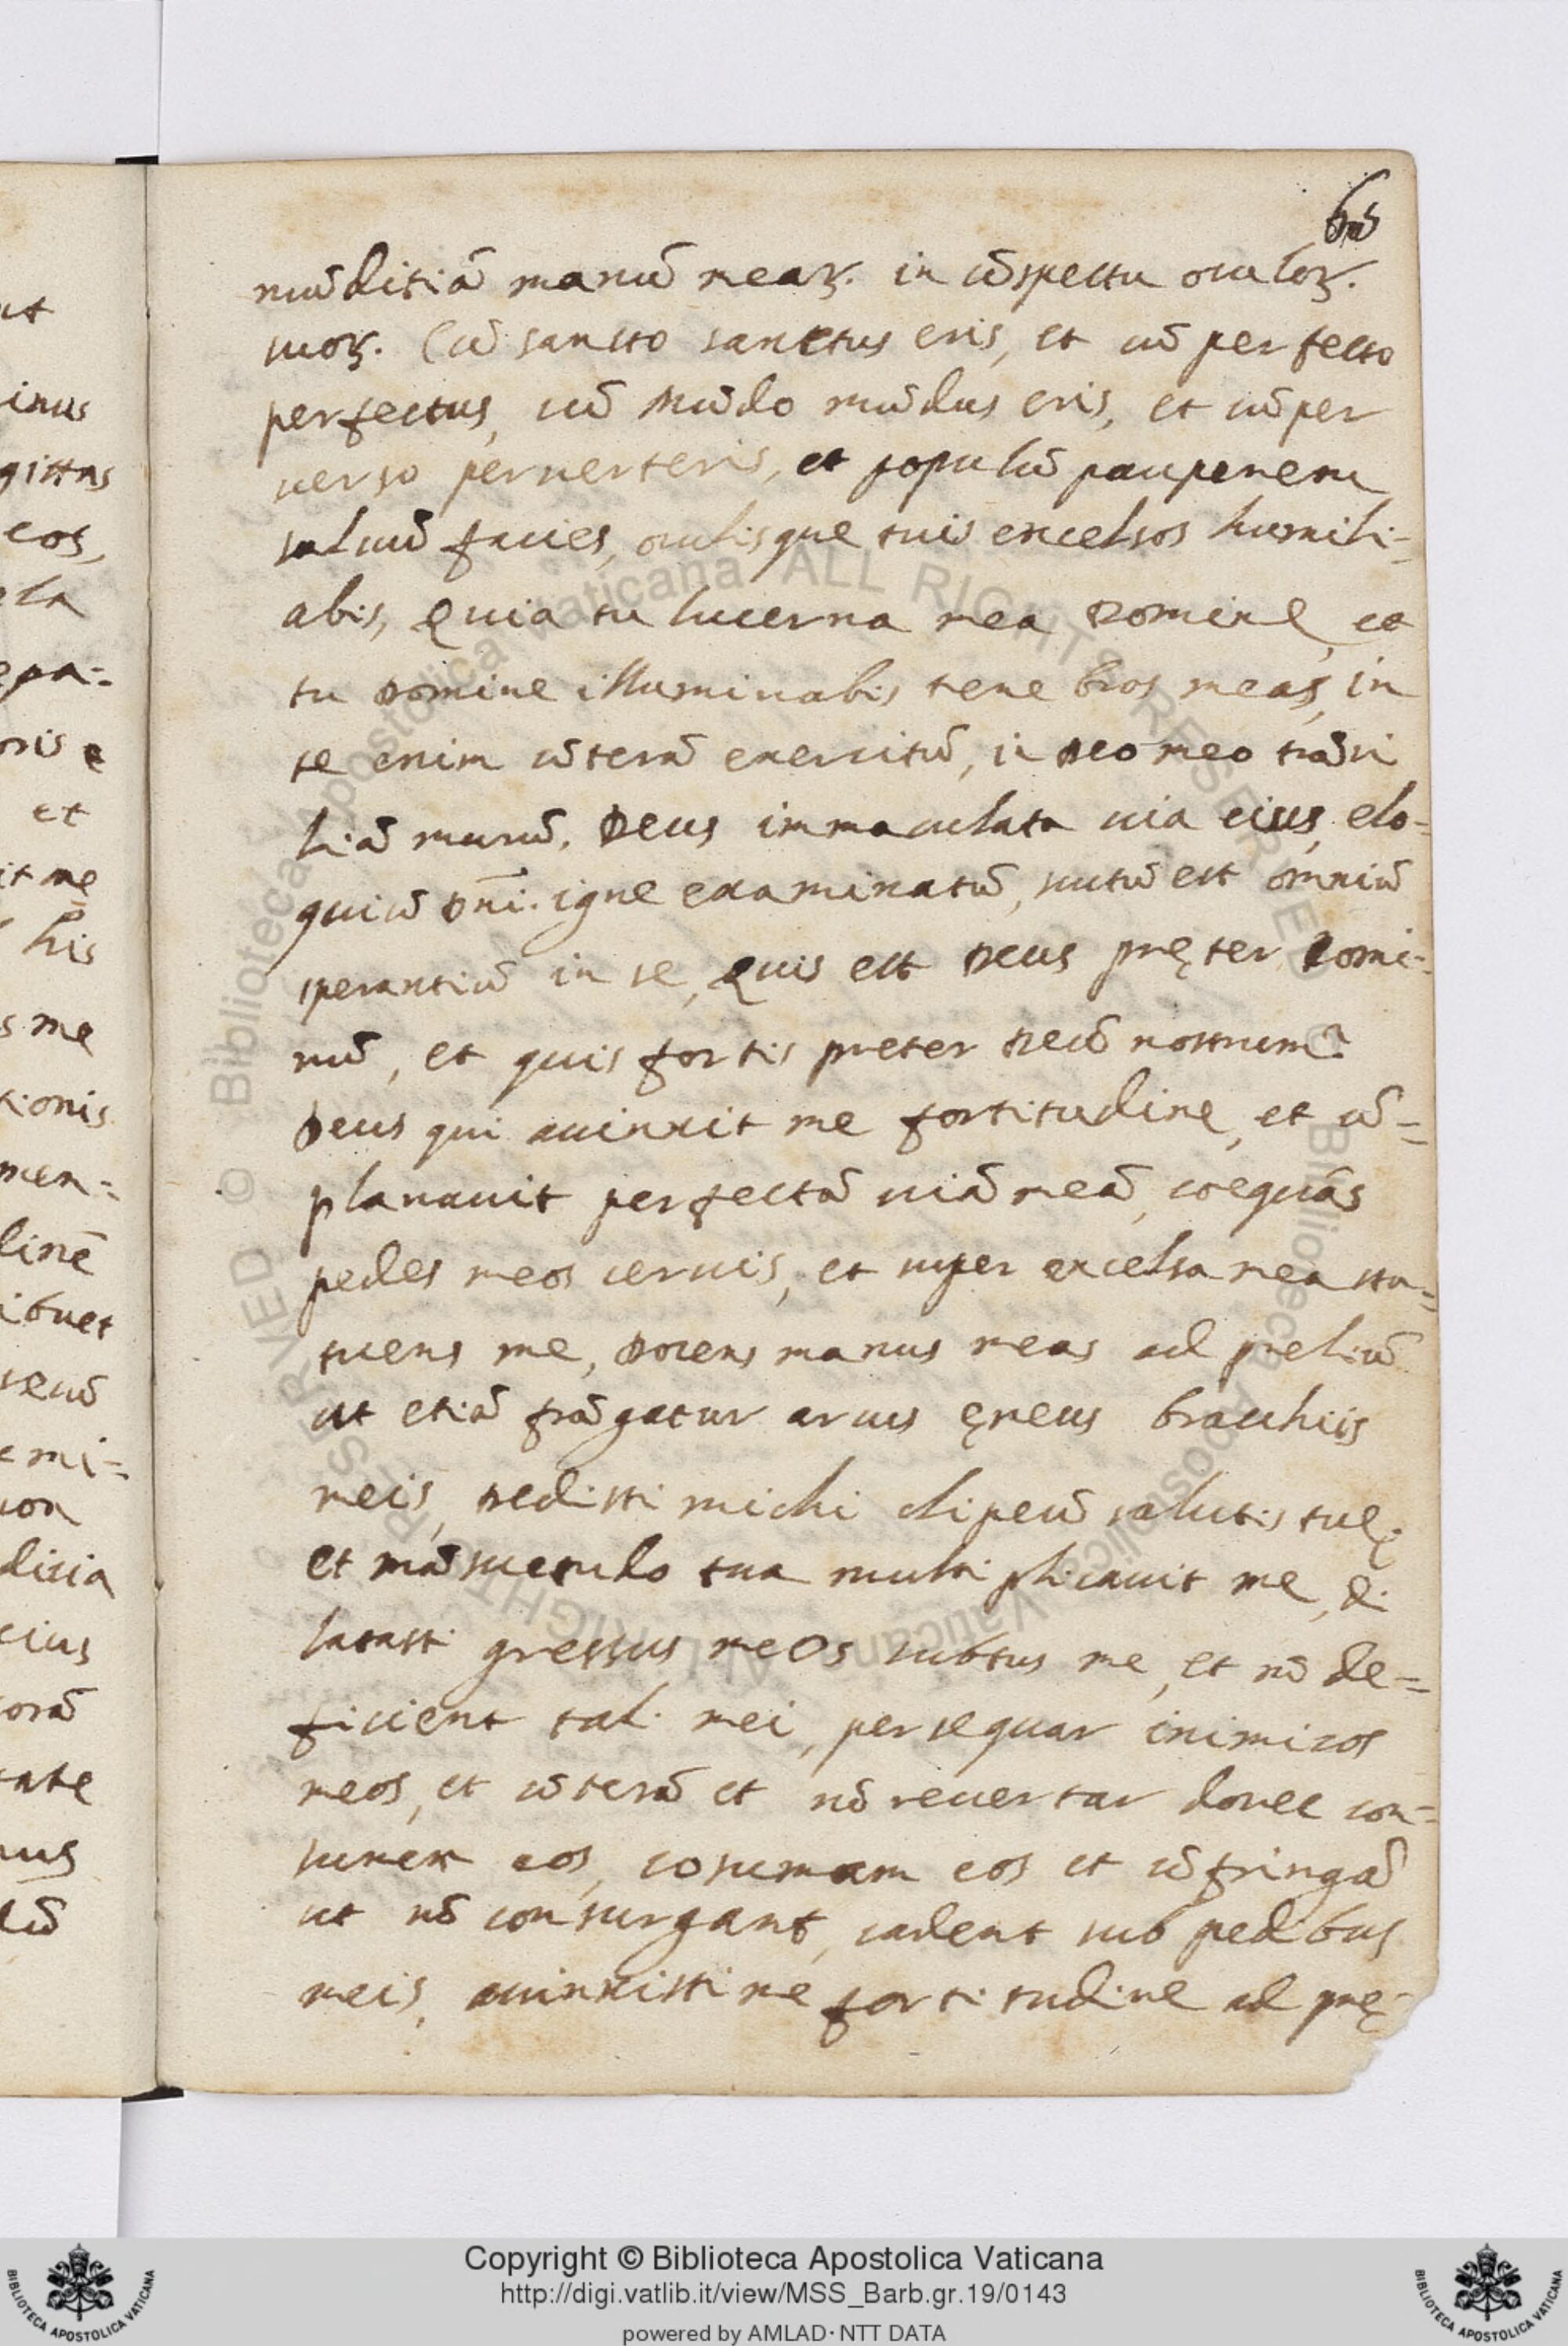 65
mūditiā manū meaꝝ. in cōspectu oculoꝝ.
suoꝝ. Cū sancto sanctus eris, et cū perfecto
perfectus, cū mūdo mūdus eris, et cū per
uerso peruerteris, et populū pauperem
saluū facies, oculisque tuis excelsos humili-
abis, Quia tu lucerna mea Domine, et
tu Domine illuminabis tenebras meas, in
te enim cōterā exercitū, i Deo meo trāsi
liā murū. Deus immaculata uia eius, elo-
quiū Dn̄i. igne examinatū, scutū est omniū
sperantiū in se, Quis est Deus pręter Domi-
nū, et quis fortis preter Deū nostrum?
Deus qui accinxit me fortitudine, et cō=
planauit perfectā uiā meā, coequās
pedes meos ceruis, et super excelsa mea sta-
tuens me, Docens manus meas ad preliū
ut etiā frāgatur arcus ęneus bracchiis
meis, Dedisti michi clipeū salutis tuę.
et māsuetudo tua multiplicauit me, di
latasti gressus meos subtus me, et nō de=
ficient tali mei, persequar inimicos
meos, et cōterā et nō reuertar donec con-
sumem eos, cosumam eos et cōfringā
ut nō consurgant, cadent sub pedibus
meis, accinxisti me fortitudine ad prę-
nt
inus
gittas
eos,
la
epa-
oris
et
it me
his
s me
tionis
men-
linē
ibuet
secū
mi-
non
licia
eius
corā
tate
nus
lū
Copyright © Biblioteca Apostolica Vaticana
http://digi.vatlib.it/view/MSS_Barb.gr.19/0143
powered by AMLAD·NTT DATA
BIBLIOTECA APOSTOLICA VATICANA
BIBLIOTECA APOSTOLICA VATICANA